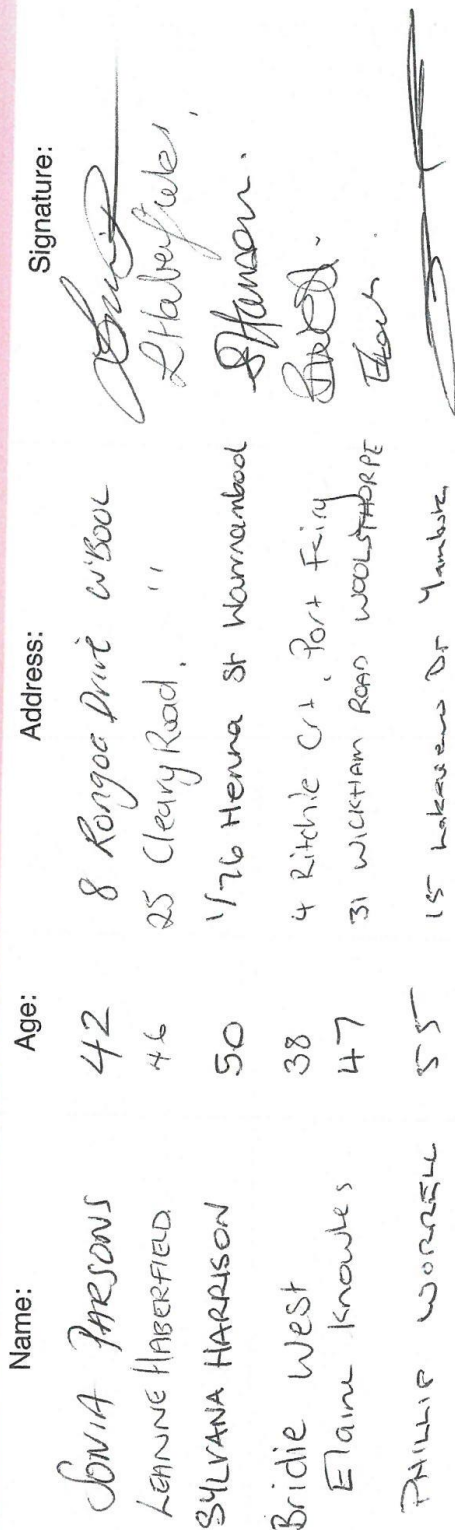 Name: Age: Address: Signature:
SONIA PARSONS 42 8 Rongoa Drive W'BOOL
LEANNE HABERFIELD. 46 25 Cleary Road, " LHaberfield.
SYLVANA HARRISON 50 1/76 Henna St Warrnambool SHarrison.
Bridie West 38 4 Ritchie Crt, Port Fairy
Elaine Knowles 47 31 WICKHAM ROAD WOOLSTHORPE
PHILLIP WORRELL 55 15 Dr Yambuk